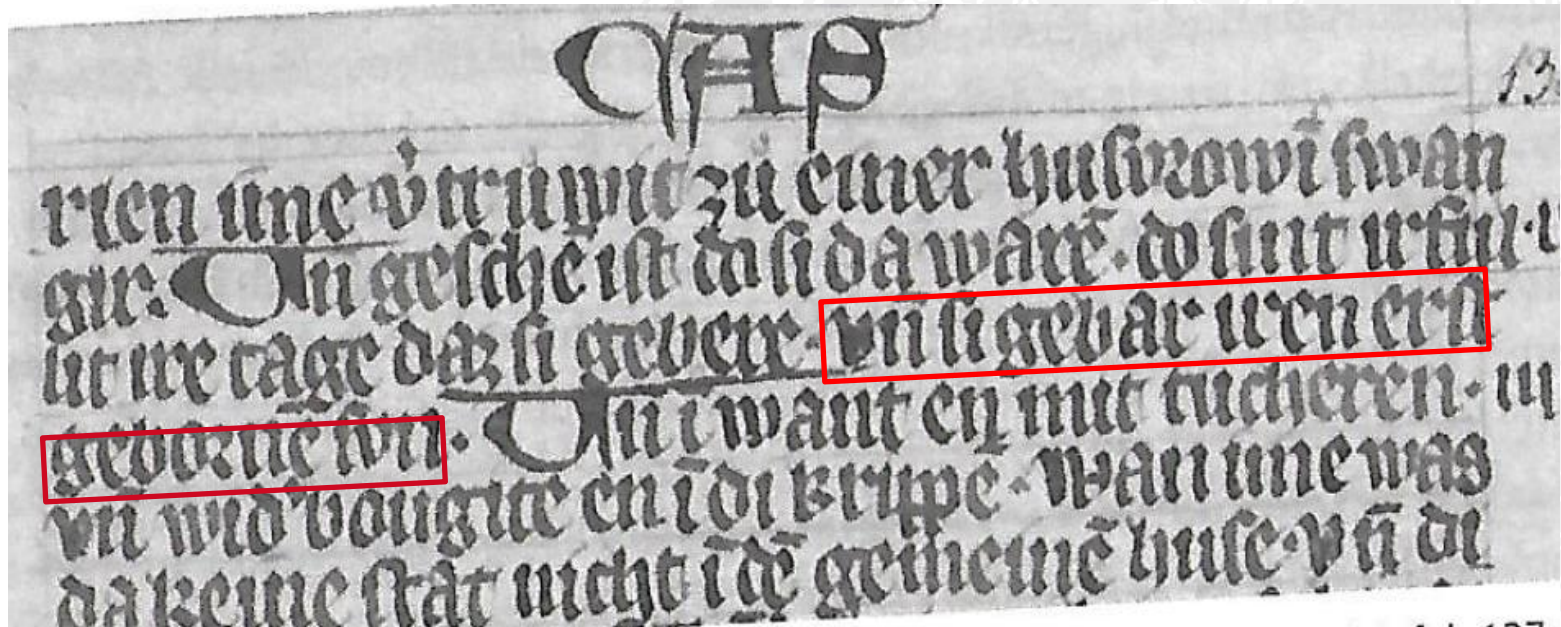 CAP
13
rien ime v̓trůwit zů einer husvrowī swan
gir. Un geschē ist do si da warē. do sint irfúl.
lit ire tage daz si gebere. vn̄ si gebar iren erst
gebornē svn. Un i want en mit tůcheren.
vn̄ wid̓ bougite en ī di krippe. Wan ime was
da keine stat nicht ī dē gemeinē huse. Vn̄ di